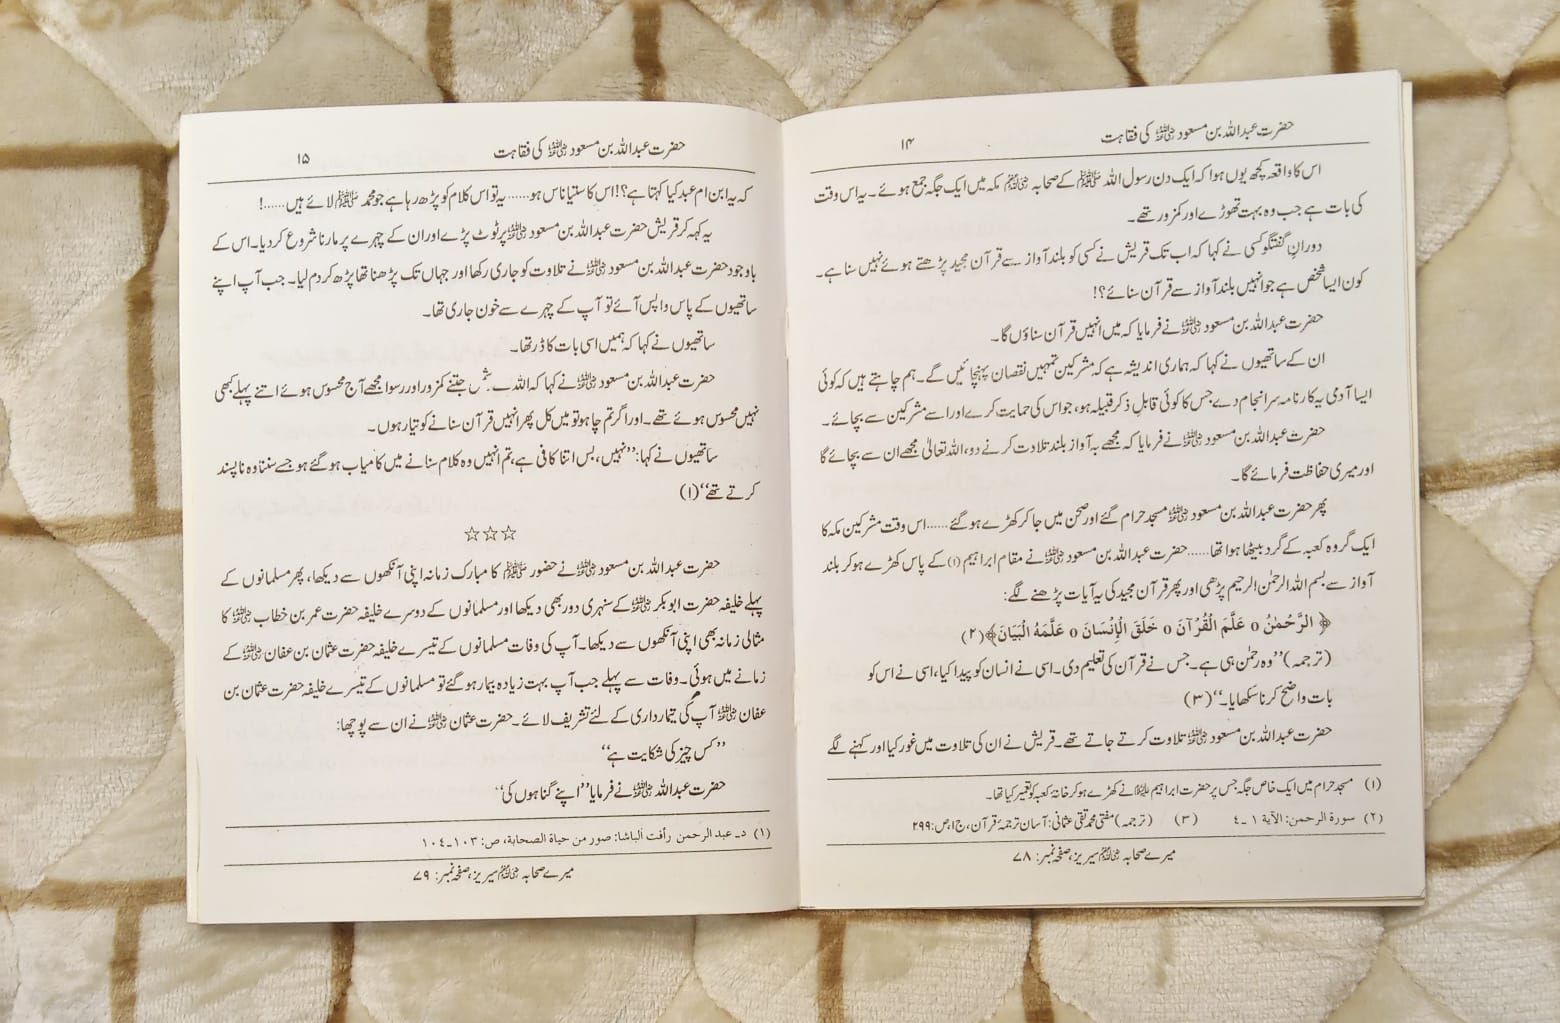 حضرت عبداللہ بن مسعود رضی اللہ عنہ کی فقاہت ۱۴
اس کا واقعہ کچھ یوں ہوا کہ ایک دن رسول اللہ ﷺ کے صحابہ رضی اللہ عنہم مکہ میں ایک جگہ جمع ہوئے۔ یہ اس وقت
کی بات ہے جب وہ بہت تھوڑے اور کمزور تھے۔
دورانِ گفتگو کسی نے کہا کہ اب تک قریش نے کسی کو بلند آواز سے قرآن مجید پڑھتے ہوئے نہیں سنا ہے۔
کون ایسا شخص ہے جو انہیں بلند آواز سے قرآن سنائے؟!
حضرت عبداللہ بن مسعود رضی اللہ عنہ نے فرمایا کہ میں انہیں قرآن سناؤں گا۔
ان کے ساتھیوں نے کہا کہ ہماری اندیشہ ہے کہ مشرکین تمہیں نقصان پہنچائیں گے۔ ہم چاہتے ہیں کہ کوئی
ایسا آدمی یہ کارنامہ سرانجام دے جس کا کوئی قابلِ ذکر قبیلہ ہو، جو اس کی حمایت کرے اور اسے مشرکین سے بچائے۔
حضرت عبداللہ بن مسعود رضی اللہ عنہ نے فرمایا کہ مجھے بہ آواز بلند تلاوت کرنے دو، اللہ تعالیٰ مجھے ان سے بچائے گا
اور میری حفاظت فرمائے گا۔
پھر حضرت عبداللہ بن مسعود رضی اللہ عنہ مسجد حرام گئے اور صحن میں جا کر کھڑے ہوگئے......اس وقت مشرکین مکہ کا
ایک گروہ کعبہ کے گرد بیٹھا ہوا تھا......حضرت عبداللہ بن مسعود رضی اللہ عنہ نے مقام ابراہیم (۱) کے پاس کھڑے ہو کر بلند
آواز سے بسم اللہ الرحمٰن الرحیم پڑھی اور پھر قرآن مجید کی یہ آیات پڑھنے لگے:
﴿ الرَّحْمٰنُ o عَلَّمَ الْقُرْآنَ o خَلَقَ الْإِنْسَانَ o عَلَّمَهُ الْبَيَانَ﴾ (۲)
(ترجمہ) ’’وہ رحمٰن ہی ہے۔ جس نے قرآن کی تعلیم دی۔ اسی نے انسان کو پیدا کیا، اسی نے اس کو
بات واضح کرنا سکھایا۔‘‘ (۳)
حضرت عبداللہ بن مسعود رضی اللہ عنہ تلاوت کرتے جاتے تھے۔ قریش نے ان کی تلاوت میں غور کیا اور کہنے لگے
(۱) مسجد حرام میں ایک خاص جگہ جس پر حضرت ابراہیم علیہ السلام نے کھڑے ہو کر خانۂ کعبہ کو تعمیر کیا تھا۔
(۲) سورة الرحمن: الآیة ۱۔۴ (۳) (ترجمہ) مفتی محمد تقی عثمانی: آسان ترجمۂ قرآن، ج۱، ص:۲۹۹
میرے صحابہ رضی اللہ عنہم سیریز، صفحہ نمبر: ۷۸
حضرت عبداللہ بن مسعود رضی اللہ عنہ کی فقاہت ۱۵
کہ یہ ابن ام عبد کیا کہتا ہے؟! اس کا ستیاناس ہو...... یہ تو اس کلام کو پڑھ رہا ہے جو محمد ﷺ لائے ہیں......!
یہ کہہ کر قریش حضرت عبداللہ بن مسعود رضی اللہ عنہ پر ٹوٹ پڑے اور ان کے چہرے پر مارنا شروع کردیا۔ اس کے
باوجود حضرت عبداللہ بن مسعود رضی اللہ عنہ نے تلاوت کو جاری رکھا اور جہاں تک پڑھنا تھا پڑھ کر دم لیا۔ جب آپ اپنے
ساتھیوں کے پاس واپس آئے تو آپ کے چہرے سے خون جاری تھا۔
ساتھیوں نے کہا کہ ہمیں اسی بات کا ڈر تھا۔
حضرت عبداللہ بن مسعود رضی اللہ عنہ نے کہا کہ اللہ کے دشمن جتنے کمزور اور رسوا مجھے آج محسوس ہوئے اتنے پہلے کبھی
نہیں محسوس ہوئے تھے۔ اور اگر تم چاہو تو میں کل پھر انہیں قرآن سنانے کو تیار ہوں۔
ساتھیوں نے کہا: ’’نہیں، بس اتنا کافی ہے، تم انہیں وہ کلام سنانے میں کامیاب ہوگئے ہو جسے سننا وہ ناپسند
کرتے تھے‘‘ (۱)
☆☆☆
حضرت عبداللہ بن مسعود رضی اللہ عنہ نے حضور ﷺ کا مبارک زمانہ اپنی آنکھوں سے دیکھا، پھر مسلمانوں کے
پہلے خلیفہ حضرت ابوبکر رضی اللہ عنہ کے سنہری دور بھی دیکھا اور مسلمانوں کے دوسرے خلیفہ حضرت عمر بن خطاب رضی اللہ عنہ کا
مثالی زمانہ بھی اپنی آنکھوں سے دیکھا۔ آپ کی وفات مسلمانوں کے تیسرے خلیفہ حضرت عثمان بن عفان رضی اللہ عنہ کے
زمانے میں ہوئی۔ وفات سے پہلے جب آپ بہت زیادہ بیمار ہوگئے تو مسلمانوں کے تیسرے خلیفہ حضرت عثمان بن
عفان رضی اللہ عنہ آپ کی تیمارداری کے لئے تشریف لائے۔ حضرت عثمان رضی اللہ عنہ نے ان سے پوچھا:
’’کس چیز کی شکایت ہے‘‘
حضرت عبداللہ رضی اللہ عنہ نے فرمایا ’’اپنے گناہوں کی‘‘
(۱) د۔ عبد الرحمن رأفت الباشا: صور من حیاة الصحابة، ص: ۱۰۳۔۱۰۴
میرے صحابہ رضی اللہ عنہم سیریز، صفحہ نمبر: ۷۹